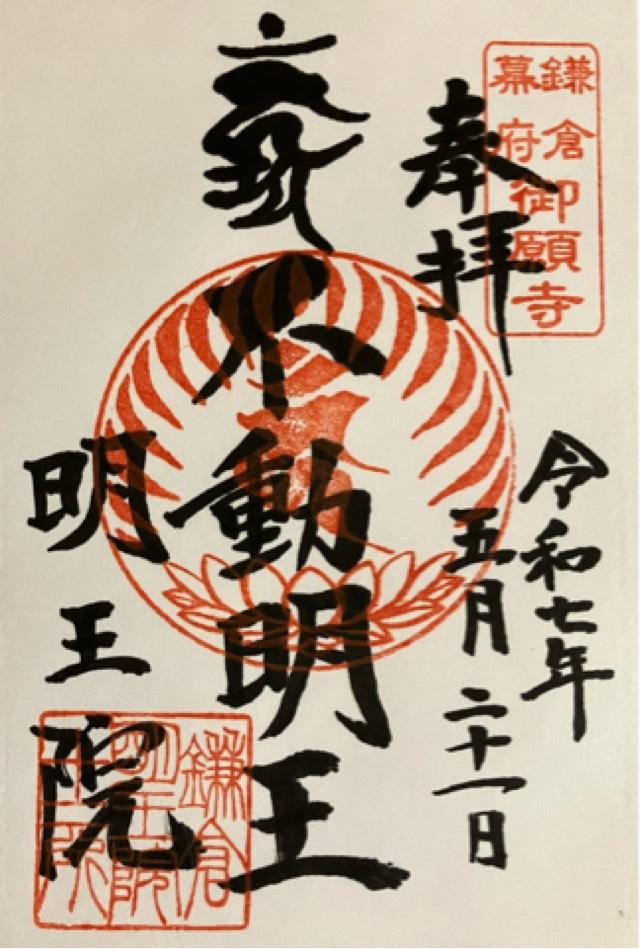 鎌倉
幕府
御願寺
奉拝
令和七年
五月二十一日
不動明王
明王院
鎌倉
明王院